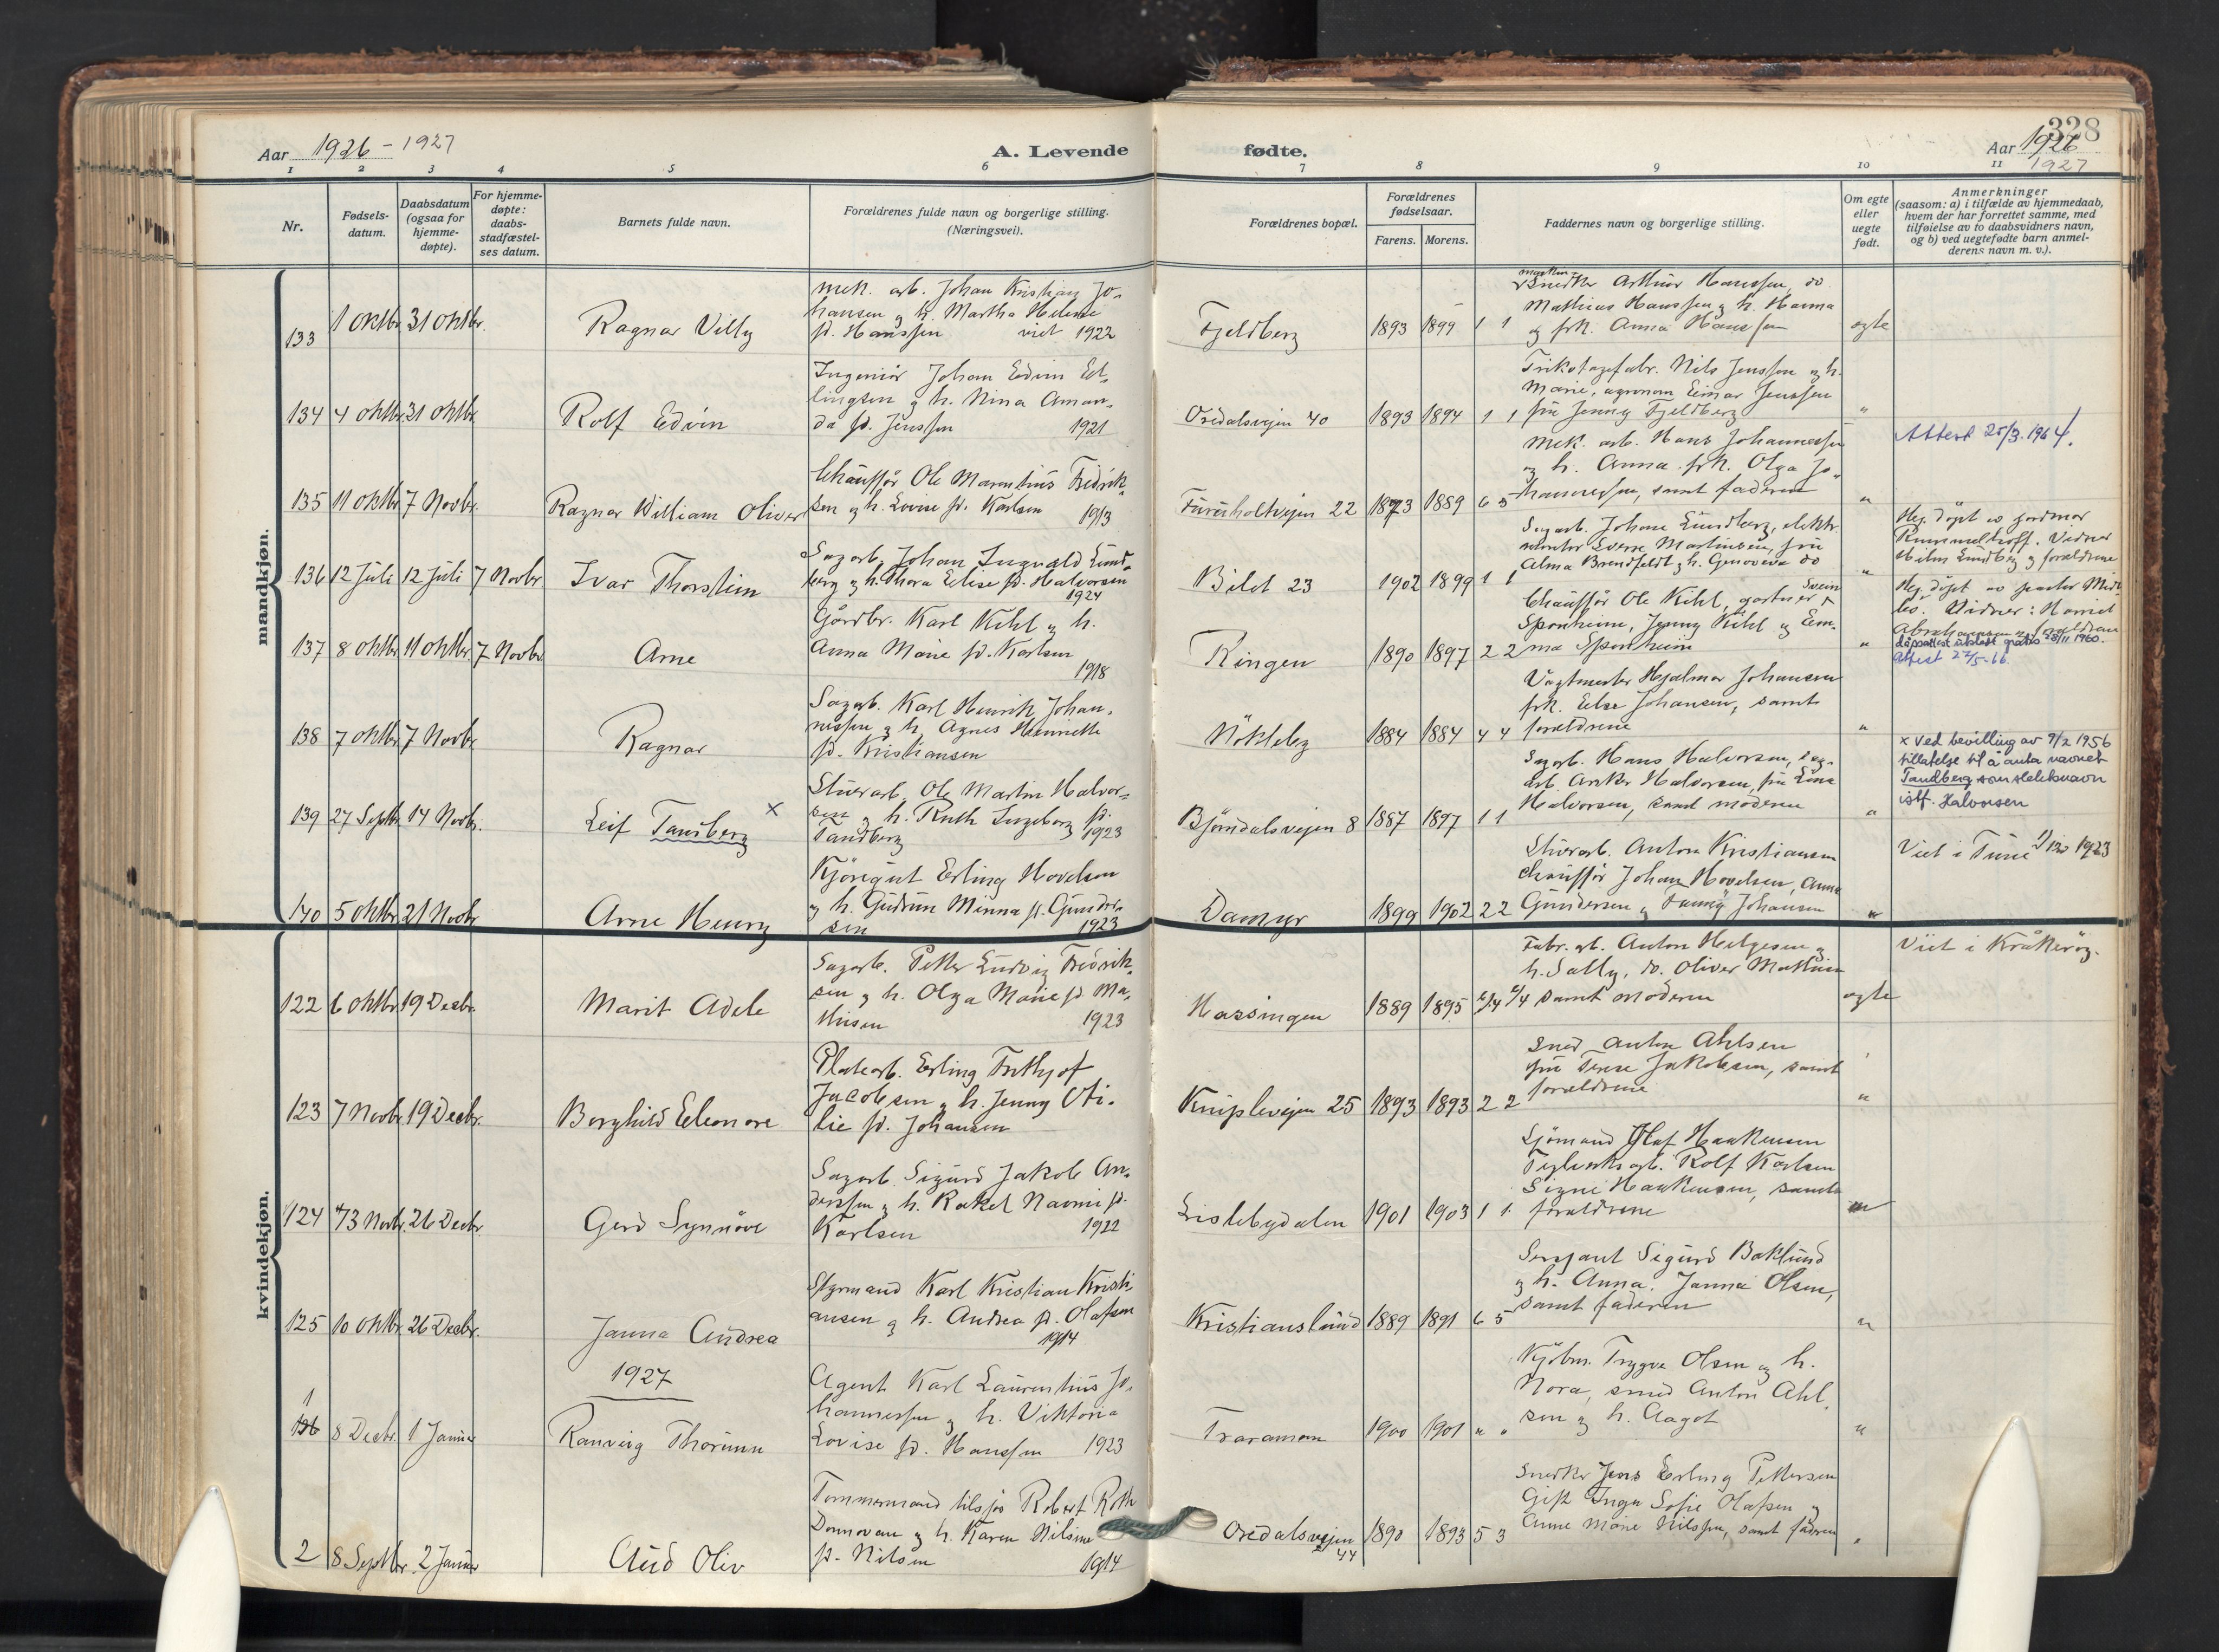 Aar 1926 - 1927
A. Levende
fødte.
328
Aar 1926
1927
1 2 3 4 5 6 7 8 9 10 11
Nr.
Fødsels-
datum.
Daabsdatum
(ogsaa for
hjemme-
døpte).
For hjemme-
døpte:
daabs-
stadfæstel-
ses datum.
Barnets fulde navn.
Forældrenes fulde navn og borgerlige stilling.
(Næringsvei).
Forældrenes bopæl.
Forældrenes
fødselsaar.
Farens. Morens.
Faddernes navn og borgerlige stilling.
Om egte
eller
uegte
født.
Anmerkninger
(saasom: a) i tilfælde av hjemmedaab,
hvem der har forrettet samme, med
tilføielse av to daabsvidners navn,
og b) ved uegtefødte barn anmel-
derens navn m. v.).
mandkjøn.
133 1 Oktbr. 31 Oktbr. Ragnar Villy
Mek. arb. Johan Kristian Jo-
hansen og h. Martha Helene
fd. Hanssen viet 1922
Fjeldberg 1893 1899 1 1
Snedker Arthur Hanssen, do
Mathias Hanssen og h. Hanna
og frk. Anna Hanssen
egte
134 4 Oktbr. 31 Oktbr. Rolf Edvin
Ingeniør Johan Edvin Ed-
lingsen og h. Nina Aman-
da fd. Jenssen 1921
Oredalsvejen 40 1893 1894 1 1
Trikotagefabr. Nils Jenssen og h.
Marie, agronom Einar Jenssen
fru Jenny Fjeldberg
"
Attest 25/3. 1964.
135 11 Oktbr. 7 Novbr. Ragnar William Oliver
Chauffør Ole Marentius Fredrik-
sen og h. Lovise fd. Karlsen 1913
Furuholtvejen 22 1873 1889 6 5
Mek. arb. Hans Johannessen
og h. Anna. frk. Olga Jo-
hannessen, samt faderen
"
136 12 Juli 12 Juli 7 Novbr. Ivar Thorstein
Sagarb. Johan Ingvald Lund-
berg og h. Thora Elise fd. Halvorsen
1924
Bilet 23 1902 1899 1 1
Sagarb. Johan Lundberg, elektr.
montør Sverre Martinsen, fru
Alma Brendfeldt, h. Genoveva do
"
Hj. døpt av jordmor
Rummelhoff. Vidner
Hilm Lundberg og forældrene
137 8 Oktbr. 11 Oktbr. 7 Novbr. Arne
Gårdbr. Karl Kihl og h.
Anna Marie fd. Karlsen
1918
Ringen 1890 1897 2 2
Chauffør Ole Kihl, gartner Svein
Sponheim, Jenny Kihl og Em-
ma Sponheim
"
dåpsattest utstedt gratis 28/11 1960.
Attest 27/5-66.
138 7 Oktbr. 7 Novbr. Ragnar
Sagarb. Karl Henrik Johan-
nessen og h. Agnes Henriette
fd. Kristiansen
Nökleby 1884 1884 4 4
Vagtmester Hjalmar Johansen
frk. Else Johansen, samt
forældrene
"
139 27 Septbr. 14 Novbr. Leif Tandberg x
Stuerarb. Ole Martin Halvor-
sen og h. Ruth Ingeborg fd.
Tandberg 1923
Bjørndalsvejen 8 1887 1897 1 1
Sagarb. Hans Halvorsen, sag-
arb. Halvorsen, fru Lina
Halvorsen, samt moderen
"
x Ved bevilling av 9/2 1956
tillatelse til å anta navnet
Tandberg som slektsnavn
istf. Halvorsen
140 5 Oktbr. 21 Novbr. Arne Henry
Kjøregut Erling Hovelsen
og h. Gudrun Minna fd. Gunder-
sen 1923
Damyr 1899 1902 2 2
Stuerarb. Anton Kristiansen
chauffør Johan Hovelsen, Anna
Gundersen og Fanny Johansen
"
Viet i Tune 1923
kvindekjøn.
122 6 Oktbr. 19 Decbr. Marit Adele
Sagarb. Petter Ludvig Fredrik-
sen og h. Olga Marie fd. Ma-
thisen 1923
Hassingen 1889 1895
Fabr. arb. Anton Helgesen og
h. Sally, do. Oliver Mathisen
samt moderen
egte
Viet i Kråkerøy.
123 7 Novbr. 19 Decbr. Borghild Eleonore
Platearb. Erling Frithjof
Jacobsen og h. Jenny Oti-
lie fd. Johansen
Kniplevejen 25 1893 1893 2 2
Smed Anton Ahlsen
fru Terese Jakobsen, samt
forældrene
"
124 13 Novbr. 26 Decbr. Gerd Synnöve
Sagarb. Sigurd Jakob An-
derssen og h. Rakel Naomi fd.
Karlsen 1922
Lislebydalen 1901 1903 1 1
Sjømand Olaf Haakensen
Teglverksarb. Rolf Karlsen
Signe Haakensen, samt
forældrene
"
125 10 Oktbr. 26 Decbr. Janna Andrea
Styrmand Karl Kristian Kristi-
ansen og h. Andrea fd. Olafsen
1914
Kristianslund 1889 1891 6 5
Sersjant Sigurd Baklund
og h. Anna. Janna Olsen,
samt faderen
"
1927
1 126 8 Decbr. 1 Januar Ranveig Thorunn
Agent Karl Laurentius Jo-
hannessen og h. Viktoria
Lovise fd. Hanssen 1923
Traramoen 1900 1901 " "
Kjøbm. Trygve Olsen og h.
Nora, smed Anton Ahl-
sen og h. Aagot
"
2 8 Septbr. 2 Januar Aud Oliv
Tømmermand tilsjøs Robert Roth
Donnovan og h. Karen Nilsine
fd. Nilsen 1914
Oredalsvejen
44
1890 1893 5 3
Snedker Jens Erling Pettersen
Gift Inga Sofie Olafsen og
Anne Marie Nilssen, samt faderen
"